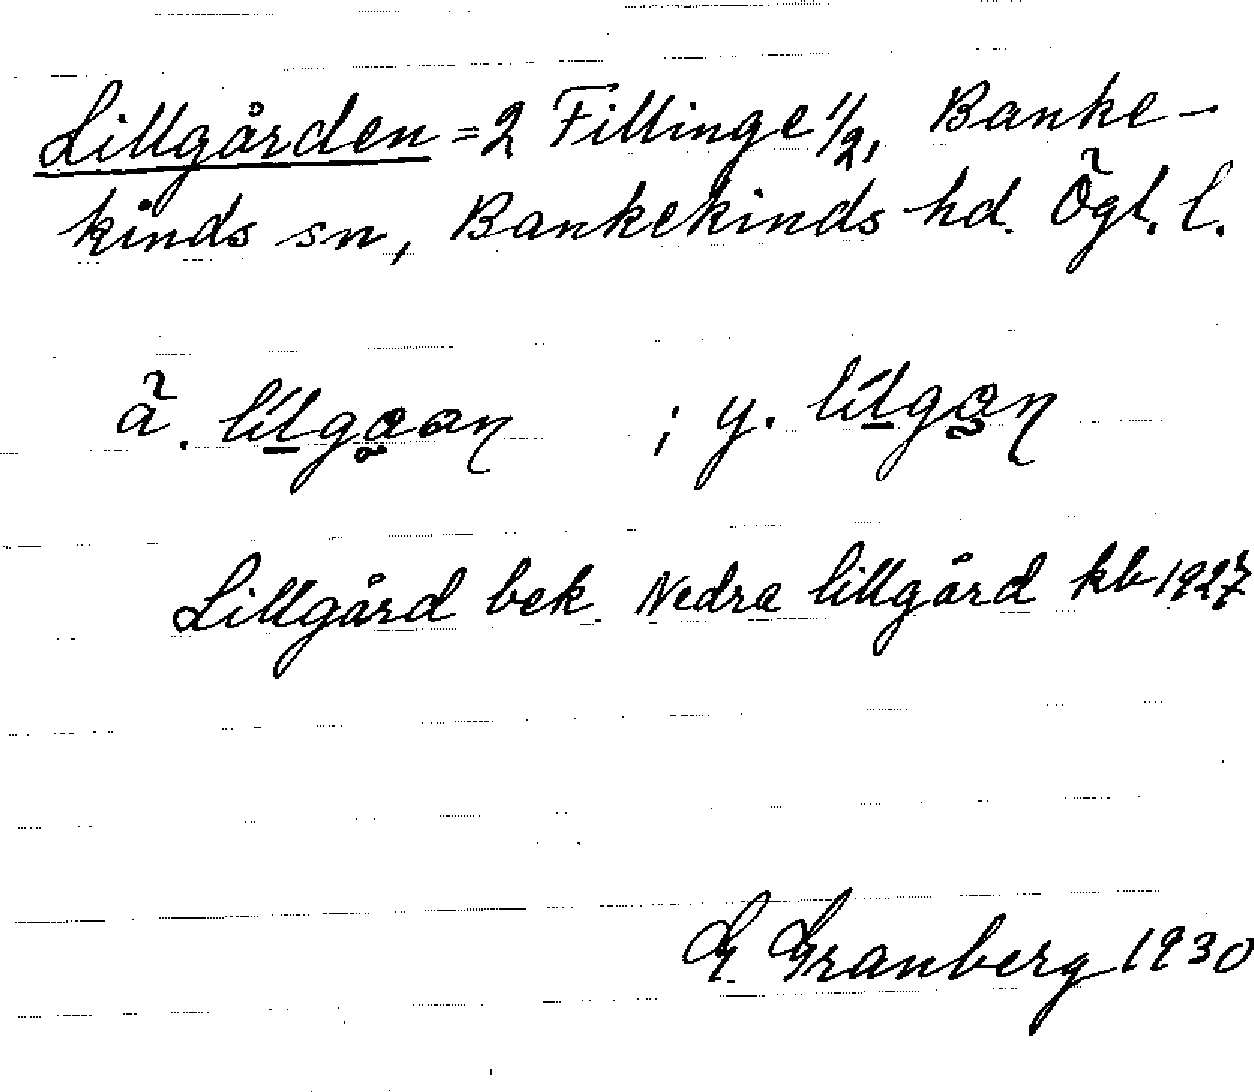 Lillgården = 2 Fillinge 1/2, Banke-
kinds sn, Bankekinds hd. Ögl. l.
ä. ; y.
Lillgård bek Nedra lillgård kb 1927
G. Granberg 1930